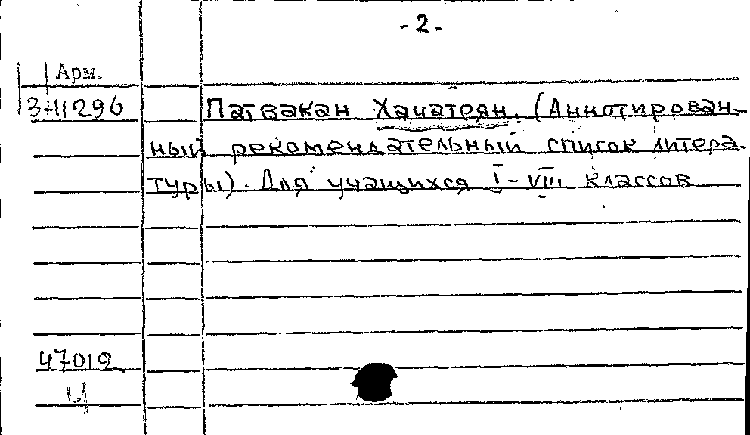 - 2 -
Арм.
3-11296
Патвакан Хачатрян. (Аннотирован-
ный рекомендательный список литера-
туры). Для учащихся I-VIII классов
47019